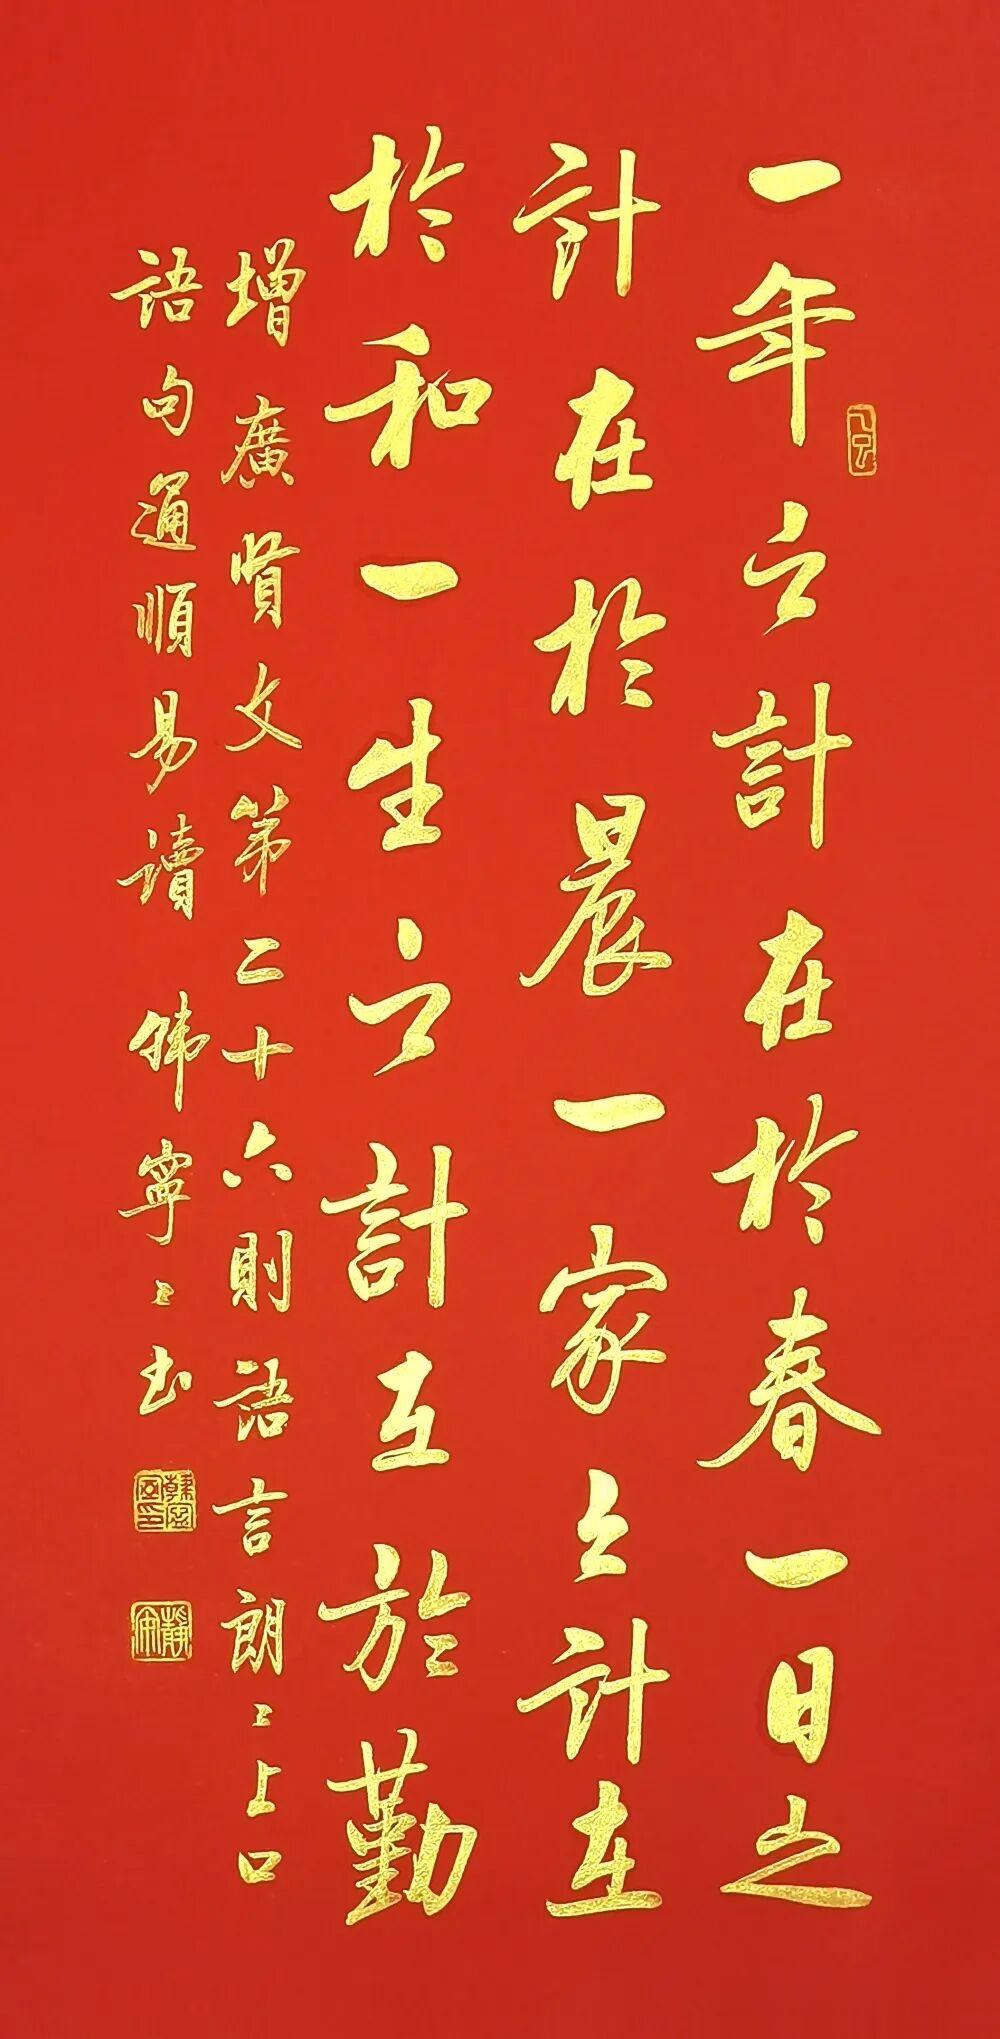 一年之計在於春一日之
計在於晨一家之計在
於和一生之計在於勤
增廣賢文第二十六則語言朗〻上口
語句通順易讀韩寧〻书